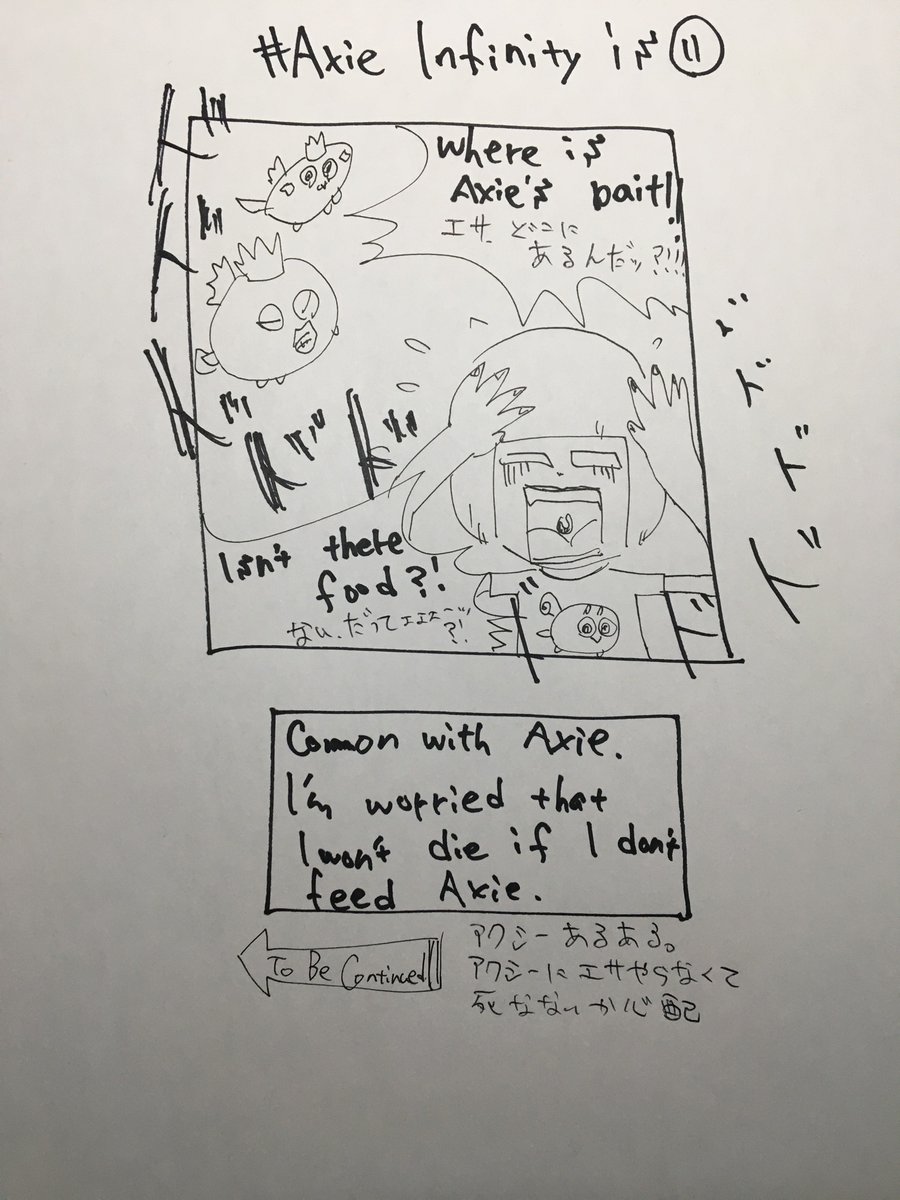 #Axie Infinity is ⑪
where is
Axie's bait!!
エサ、どこに
あるんだッ?!!!
ド ド ド ド ド
ド ド ド ド
Isn't there
food?!
ド ド
Common with Axie.
I'm worried that
I won't die if I don't
feed Axie.
To Be Continued
アクシーあるある。
アクシーにエサやらなくて
死なないか心配